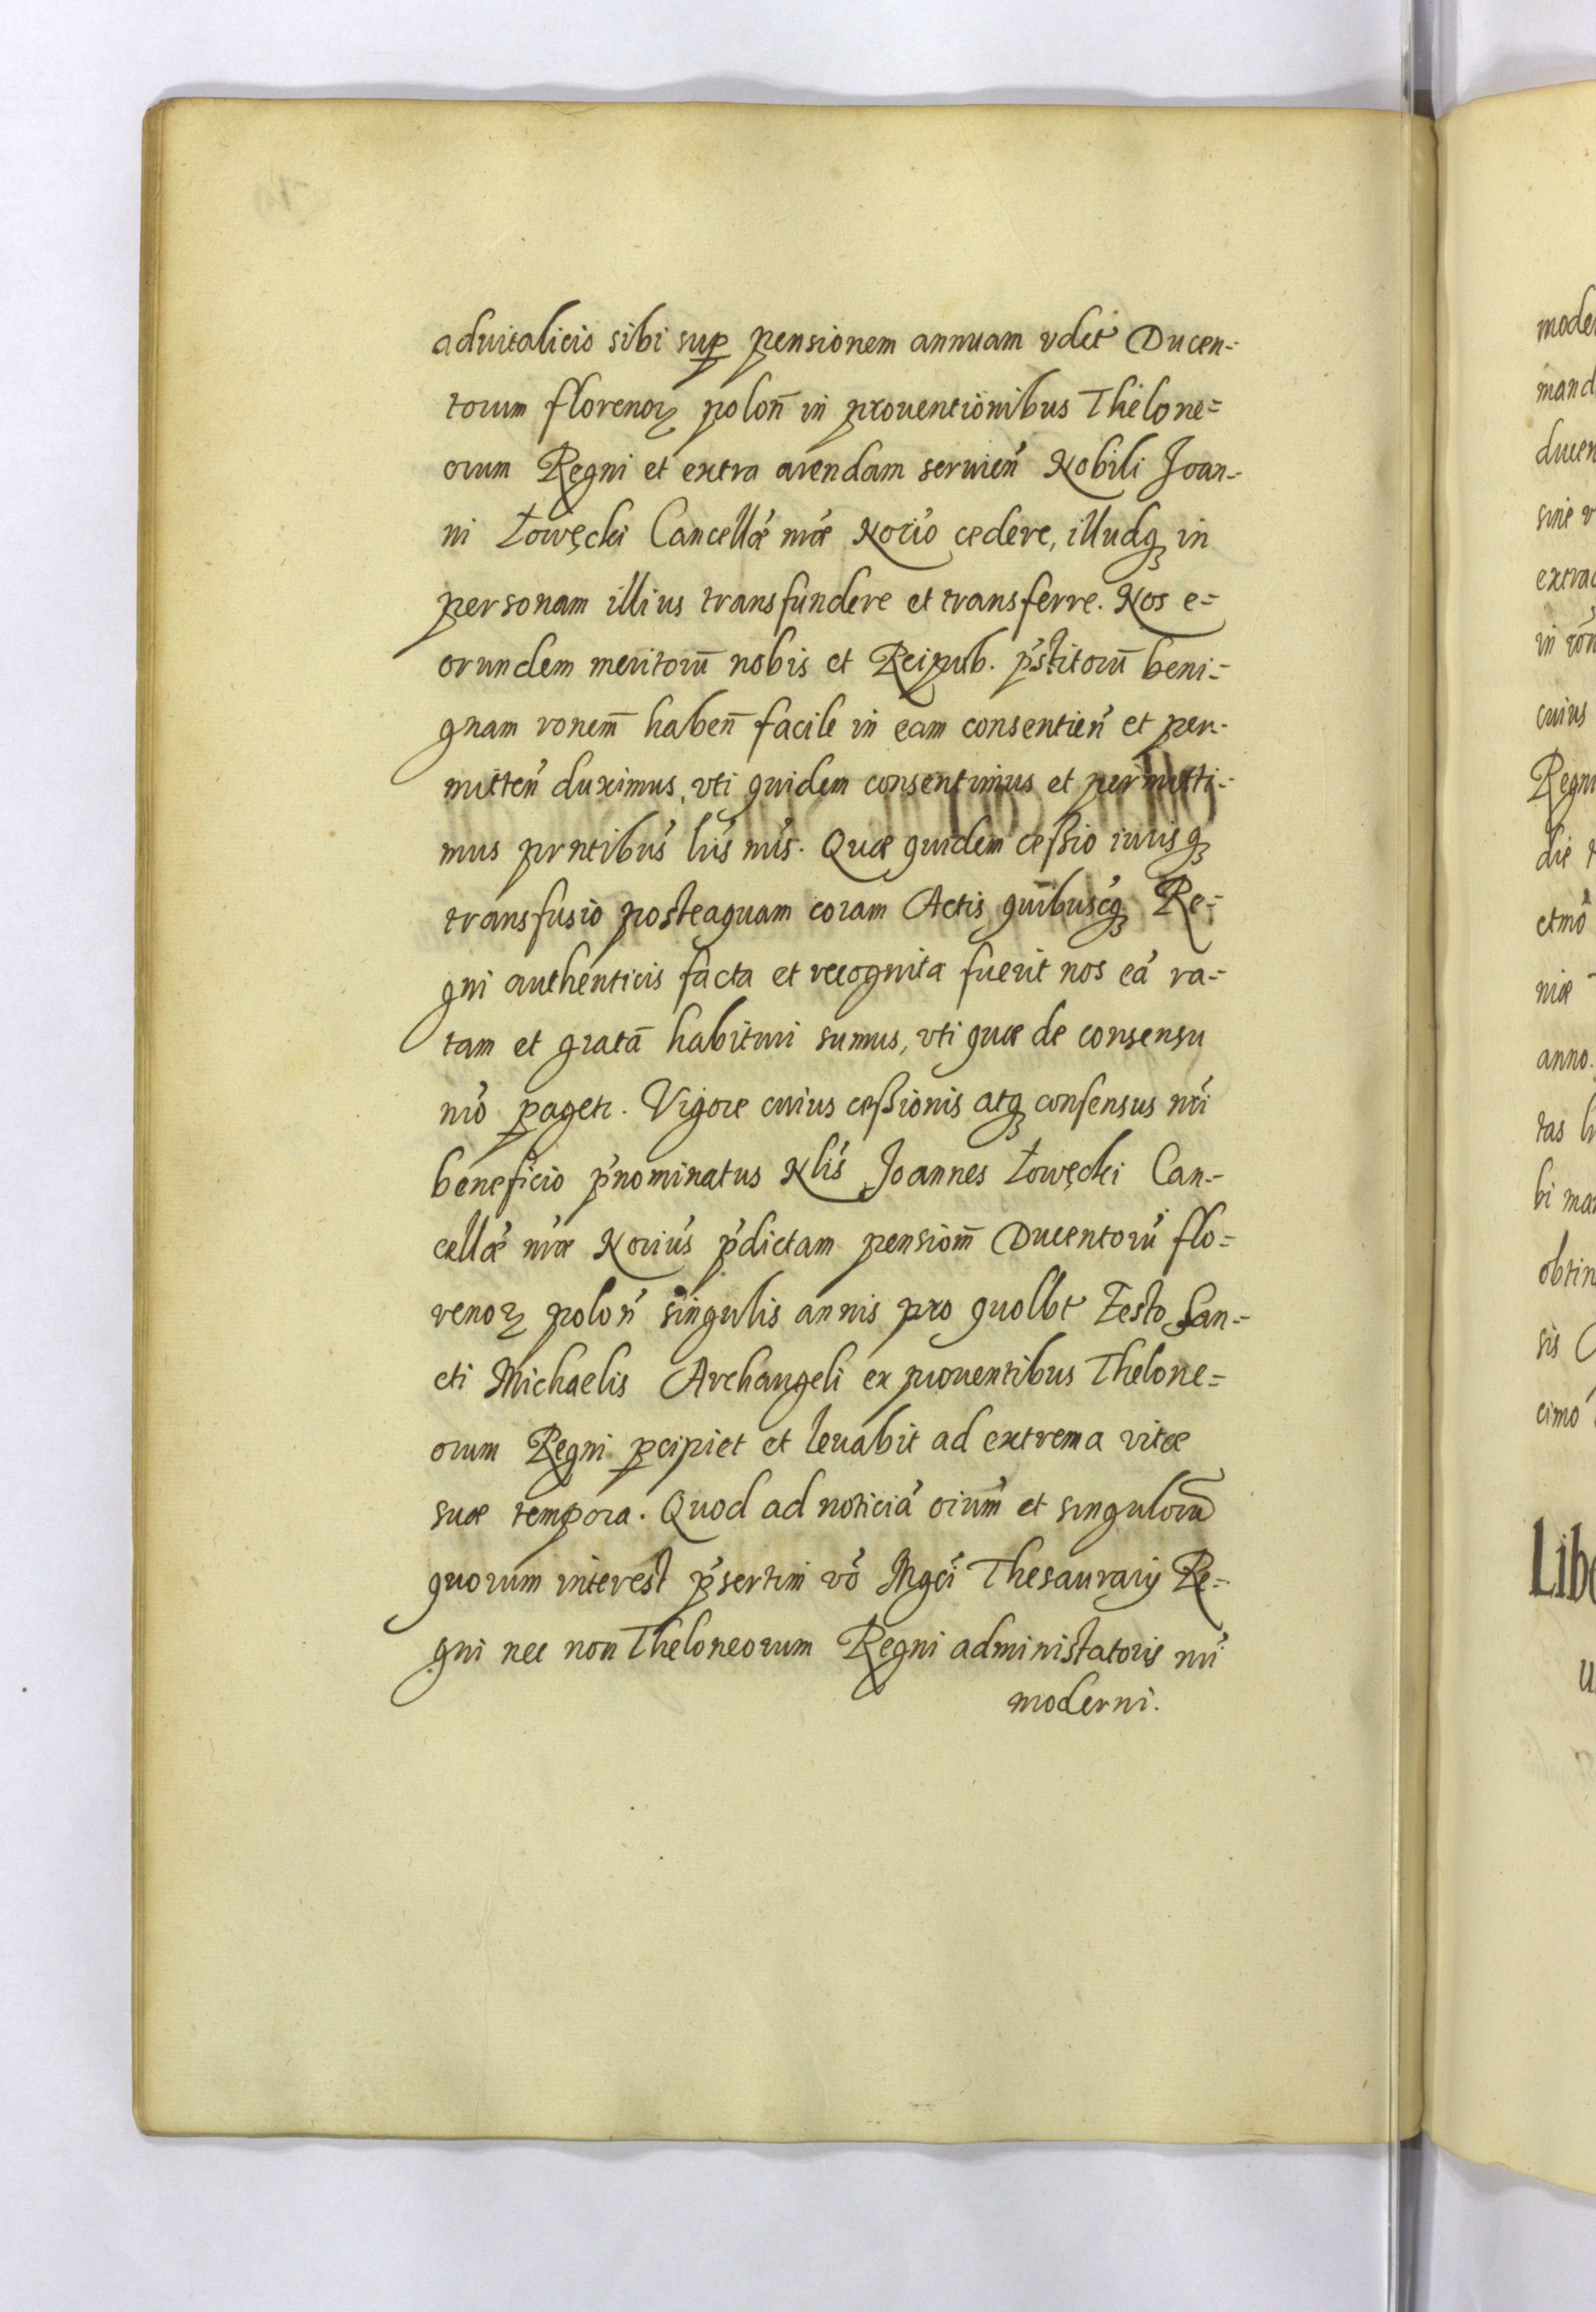 aduitalicio sibi suꝑ pensionem annuam vdet Ducen-
torum florenoꝝ polon̄ in prouentionibus Thelone=
orum Regni et extra arendam seruien̄ Nobili Joan-
ni Łowęcki Cancellæ nræ Norio cedere, illudqꝫ in
personam illius transfundere et transferre. Nos e=
orundem meritorū nobis et Reipub. p̄stitorū beni-
gnam ronem̄ haben̄ facile in eam consentien̄ et per-
mitten̄ duximus, vti quidem consentimus et permitti-
mus prntibus lris nris. Quæ quidem ceßio iurisqꝫ
transfusio posteaquam coram Actis quibuscqꝫ Re-
gni authenticis facta et recognita fuerit nos eā ra-
tam et gratā habituri sumus, vti quæ de consensu
nrō ꝑagetr. Vigore cuius ceßionis atqꝫ consensus nri
beneficio p̄nominatus Nlis Joannes Łowęcki Can-
cellæ nræ Norius p̄dictam pensiom̄ Ducentorū flo=
renoꝝ polon̄ singulis annis pro quolbt Festo San-
cti Michaelis Archangeli ex prouentibus Thelone=
orum Regni ꝑcipiet et leuabit ad extrema vitæ
suæ tempora. Quod ad noticiā oium̄ et singulorū
quorum interest p̄sertim vō Mgci Thesaurarij Re-
gni nec non Theloneorum Regni administatoris nri
moderni.